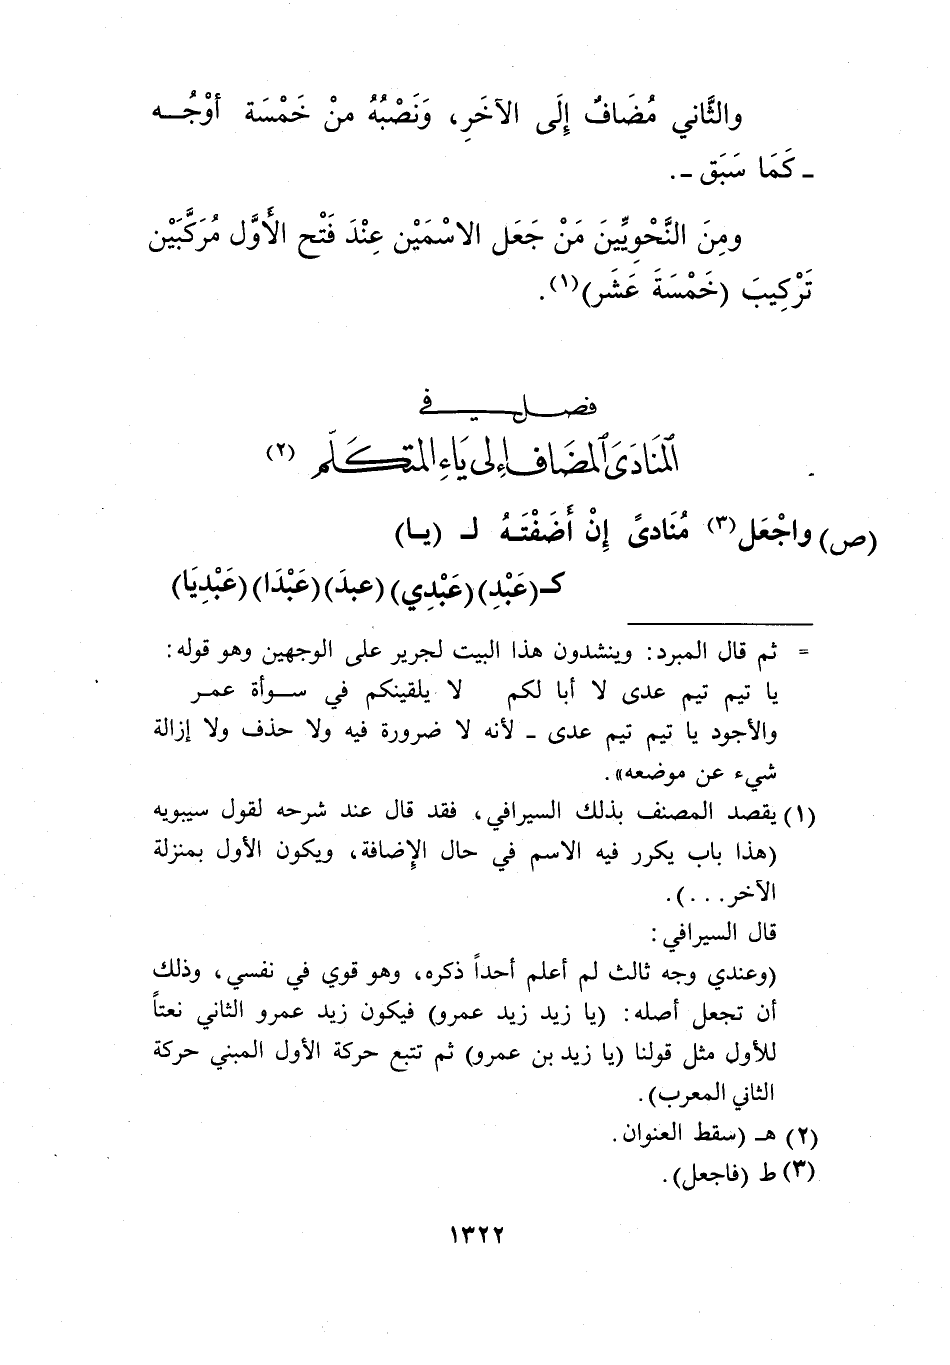 والثَّاني مُضَافٌ إِلَى الآخَرِ، وَنَصْبُهُ منْ خَمْسَة أوْجُـــه
ـ كَمَا سَبَق ـ.
ومِنَ النَّحْوِيِّينَ مَنْ جَعَل الاسْمَيْن عِنْدَ فَتْح الأَوَّل مُرَكَّبَيْن
تَرْكِيبَ (خَمْسَةَ عَشَر)(١).
فصـــل في
المُنَادَىَ المضَاف إِلى يَاءِ المتكَلّم (٢)
(ص) واجْعَل(٣) مُنَادىً إِنْ أَضَفْتَـهُ لـ (يـا)
كـ(عَبْدِ)(عَبْدِي)(عبدَ)(عَبْدَا)(عَبْدِيَا)
= ثم قال المبرد: وينشدون هذا البيت لجرير على الوجهين وهو قوله:
يا تيم تيم عدى لا أبا لكم لا يلقينكم في ســوأة عمـر
والأجود يا تيم تيم عدى ـ لأنه لا ضرورة فيه ولا حذف ولا إزالة
شيء عن موضعه».
(١) يقصد المصنف بذلك السيرافي، فقد قال عند شرحه لقول سيبويه
(هذا باب يكرر فيه الاسم في حال الإضافة، ويكون الأول بمنزلة
الآخر...).
قال السيرافي:
(وعندي وجه ثالث لم أعلم أحداً ذكره، وهو قوي في نفسي، وذلك
أن تجعل أصله: (يا زيد زيد عمرو) فيكون زيد عمرو الثاني نعتاً
للأول مثل قولنا (يا زيد بن عمرو) ثم تتبع حركة الأول المبني حركة
الثاني المعرب).
(٢) هـ (سقط العنوان.
(٣) ط (فاجعل).
١٣٢٢